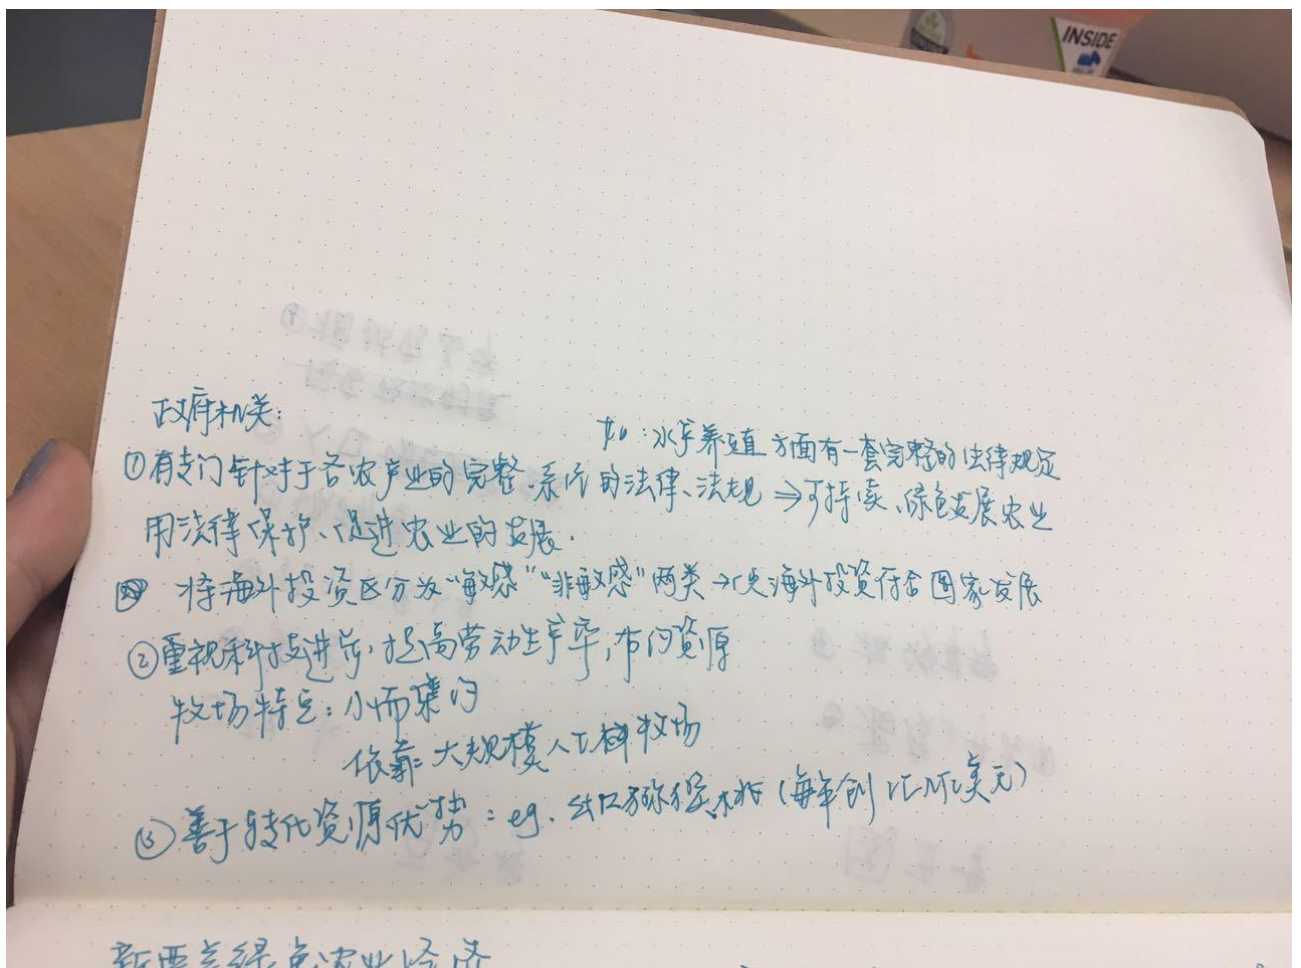 INSIDE
政府机关:
如:水产养殖方面有一套完整的法律规定
①有专门针对于各农产业的完整、系统的法律、法规 ⇒可持续、绿色发展农业
用法律保护、促进农业的发展.
将海外投资区分为“敏感”“非敏感”两类→使海外投资符合国家发展
②重视科技进步,提高劳动生产率,节约资源
牧场特点:小而集约
依靠大规模人工种牧场
③善于转化资源优势:eg. 出口猕猴桃(每年创汇 亿美元)
新西兰绿色农业经济